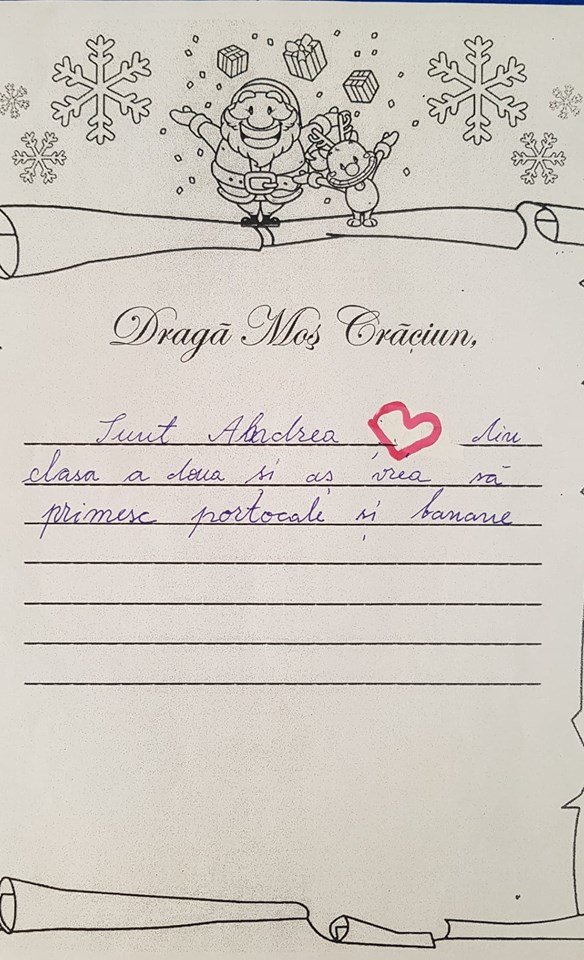 Dragă Moș Crăciun,
Sunt Abdrea din
clasa a doua și aș vrea să
primesc portocale și banane